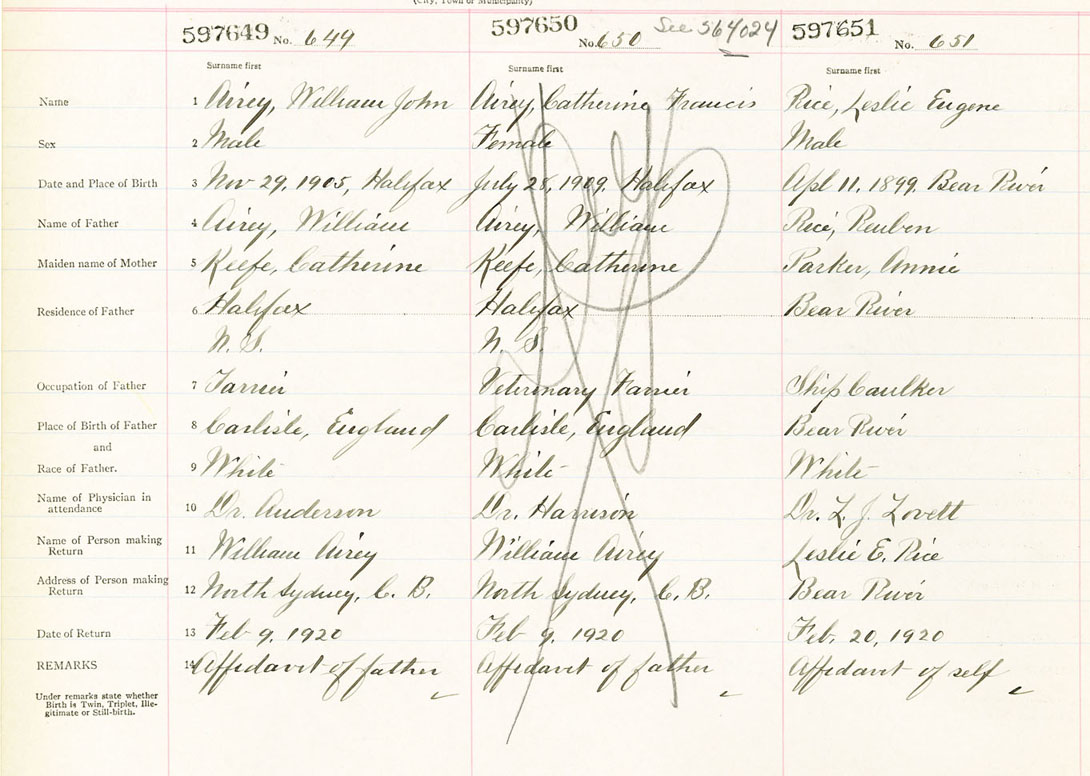 (City, Town or Municipality)
597649 No. 649 597650 No. 650 See 564024 597651 No. 651
Surname first Surname first Surname first
Name 1 Airey, William John Airey, Catherine Francis Rice, Leslie Eugene
Sex 2 Male Female Male
Date and Place of Birth 3 Nov 29, 1905, Halifax July 28, 1909, Halifax Apl 11. 1899. Bear River
Name of Father 4 Airey, William Airey, William Rice, Reuben
Maiden name of Mother 5 Keefe, Catherine Keefe, Catherine Parker, Annie
Residence of Father 6 Halifax Halifax Bear River
N. S. N. S.
Occupation of Father 7 Farrier Veterinary Farrier Ship Caulker
Place of Birth of Father 8 Carlisle, England Carlisle, England Bear River
and
Race of Father. 9 White White White
Name of Physician in
attendance 10 Dr. Anderson Dr. Harrison Dr. L. J. Lovett
Name of Person making
Return 11 William Airey William Airey Leslie E. Rice
Address of Person making
Return 12 North Sydney, C. B. North Sydney, C. B. Bear River
Date of Return 13 Feb 9, 1920 Feb 9, 1920 Feb. 20, 1920
REMARKS 14 Affidavit of father Affidavit of father Affidavit of self
Under remarks state whether
Birth is Twin, Triplet, Ille-
gitimate or Still-birth.